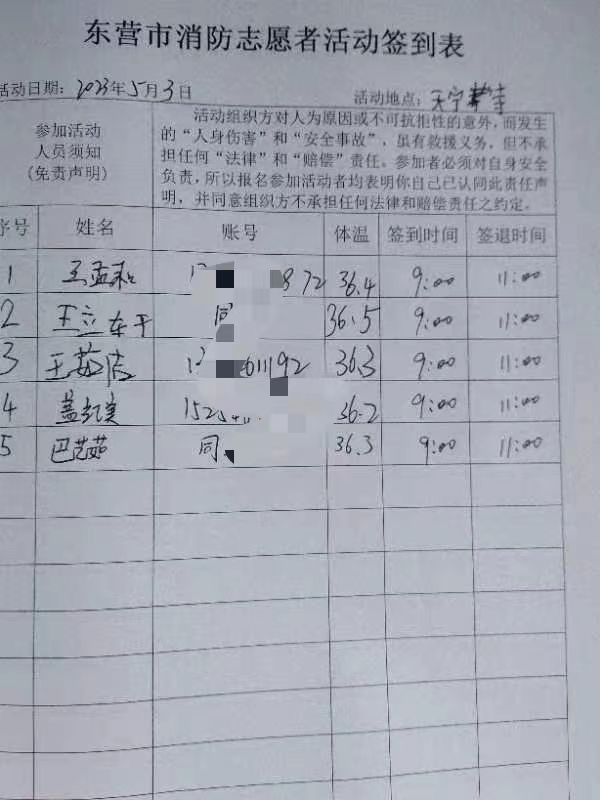 东营市消防志愿者活动签到表
活动日期：2023年5月3日 活动地点：天宁寺
参加活动
人员须知
(免责声明)
活动组织方对人为原因或不可抗拒性的意外,而发生
的“人身伤害”和“安全事故”,虽有救援义务,但不承
担任何“法律”和“赔偿”责任。参加者必须对自身安全
负责,所以报名参加活动者均表明你自己已认同此责任声
明,并同意组织方不承担任何法律和赔偿责任之约定。
序号 姓名 账号 体温 签到时间 签退时间
1 王孟和 872 36.4 9:00 11:00
2 王 同 36.5 9:00 11:00
3 王茹洁 1192 36.3 9:00 11:00
4 盖 152 36.2 9:00 11:00
5 巴艺茹 同 36.3 9:00 11:00